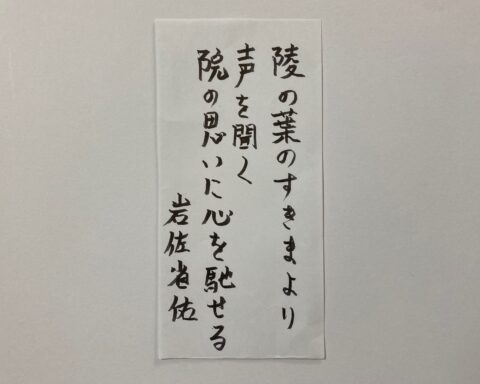 陵の葉のすきまより
声を聞く
院の思いに心を馳せる
岩佐省佑